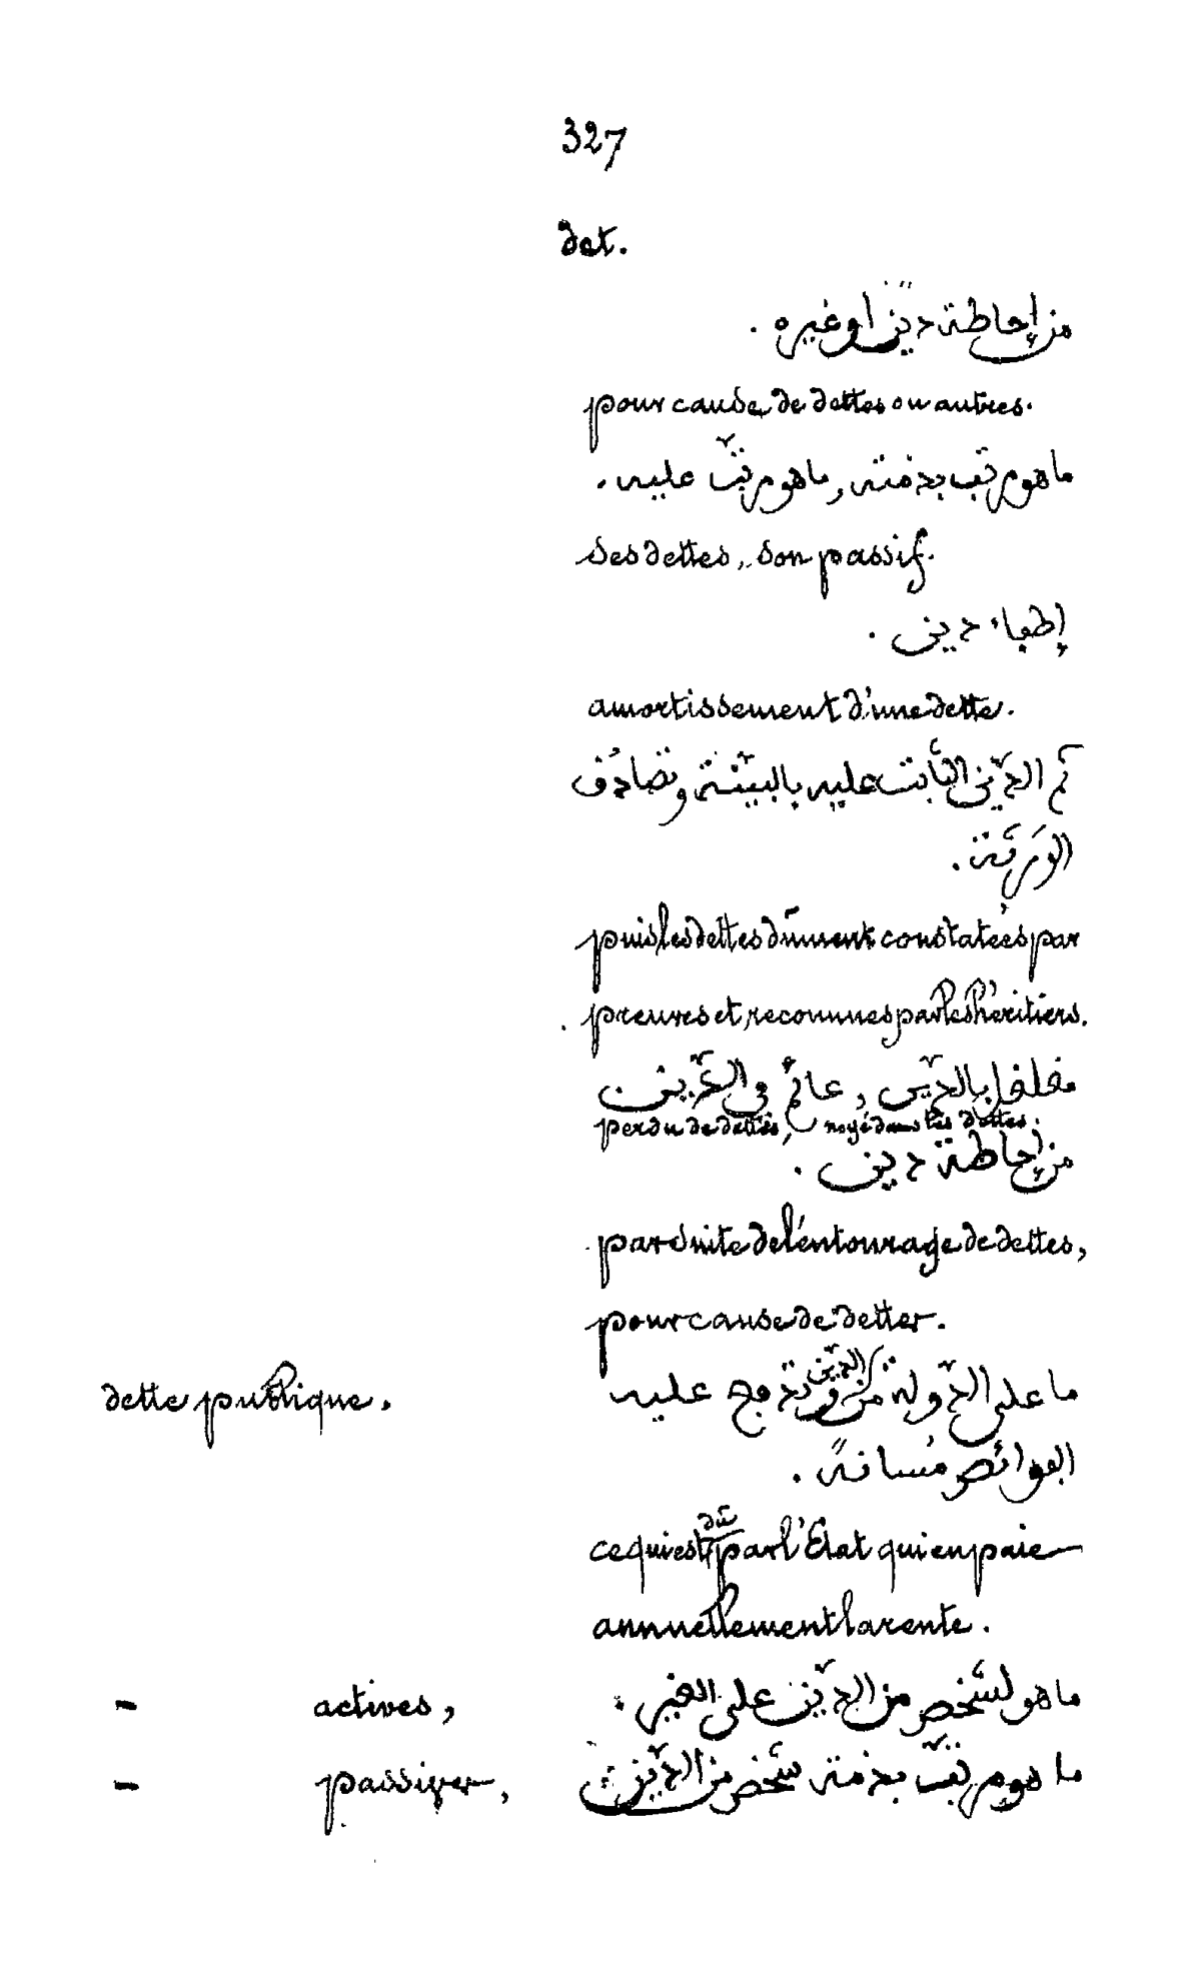 327
det.
من إحاطة دين أو غيره .
pour cause de dettes ou autres.
ما هو مرتب بذمته , ما هو مرتب عليه .
ses dettes, son passif.
إطفاء دين .
amortissement d'une dette.
ثم الدّين الثّابت عليه بالبيّنة وتصادُق
الورثة .
puis les dettes dûment constatées par
preuves et reconnues par les héritiers.
بالدّين , عائم في الدّين
perdu de dettes, noyé dans les dettes.
من إحاطة دين .
par suite de l'entourage de dettes,
pour cause de dettes.
dette publique. ما على الدّولة من الدّين وتدفع عليه
الفوائض مُسانهةً .
ce qui est dû par l'État qui en paie
annuellement la rente.
- actives, ما هو لشخص من الدّين على الغير .
- passives, ما هو مرتّب بذمته شخص من الدّين